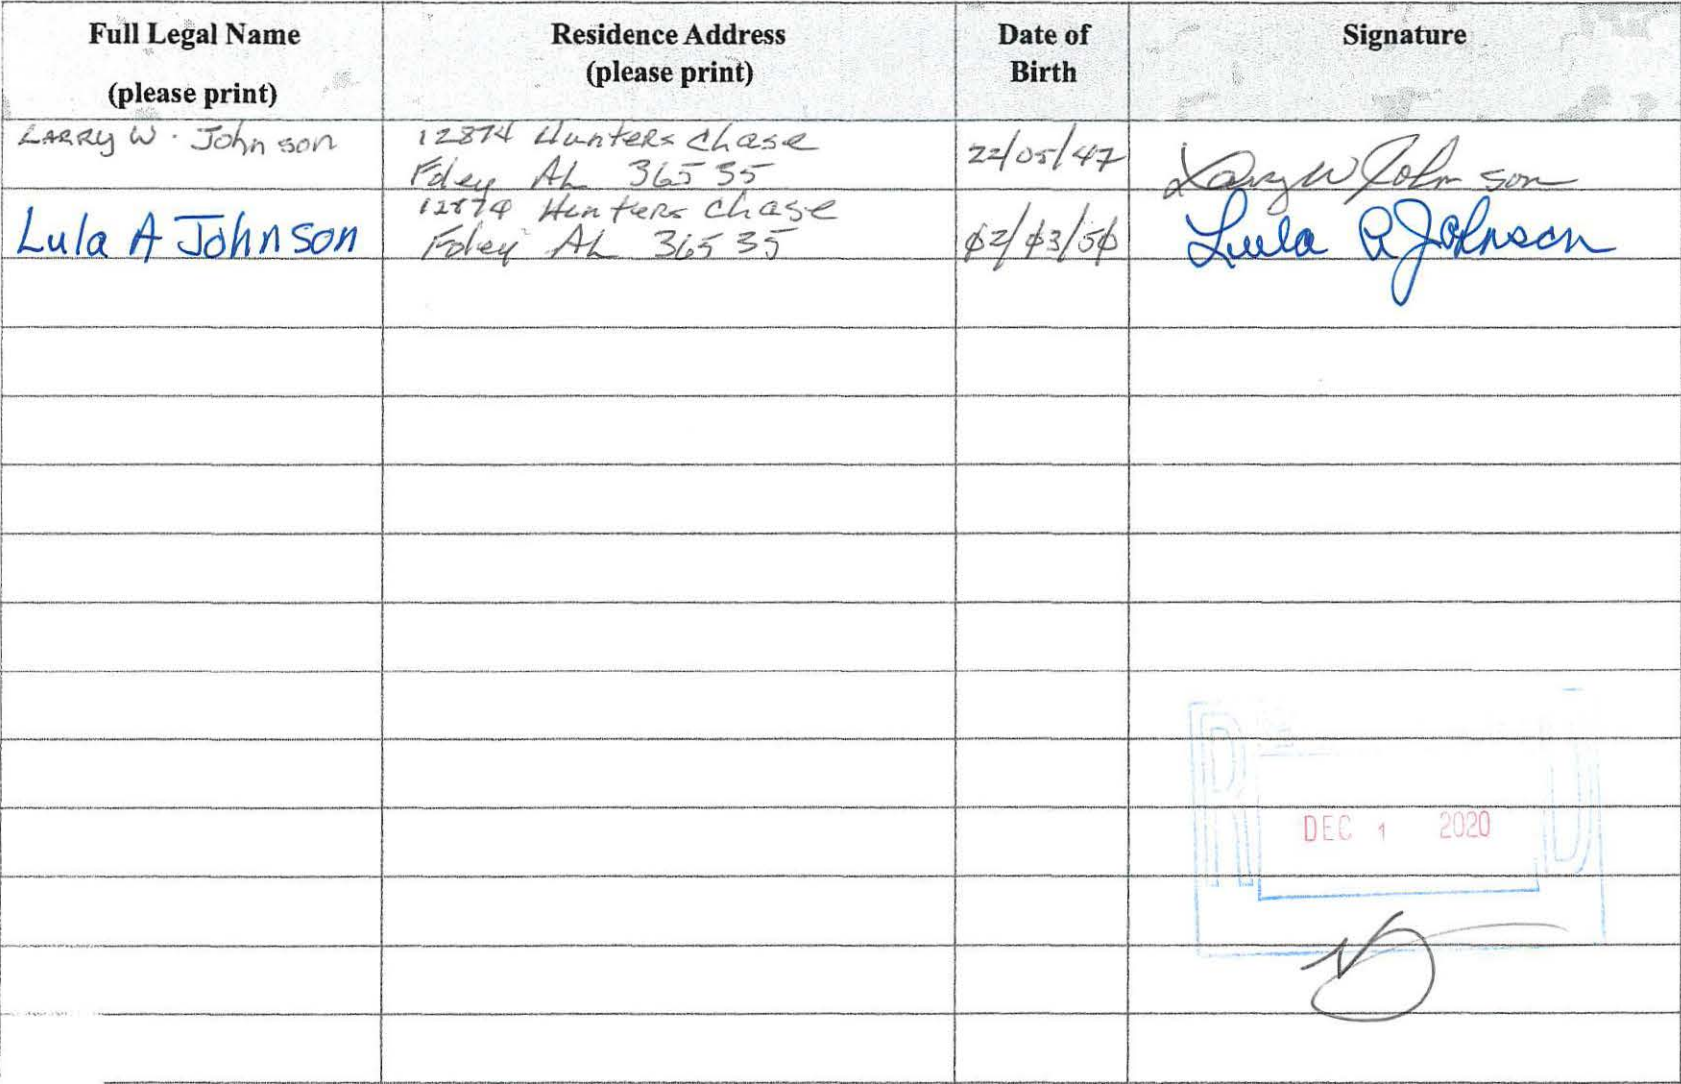 Full Legal Name
(please print)
Residence Address
(please print)
Date of
Birth
Signature
LARRY W. Johnson
12874 Hunters Chase
Foley AL 36535
22/05/47
Larry W Johnson
Lula A Johnson
12874 Hunters Chase
Foley AL 36535
02/03/50
Lula A Johnson
R D
DEC 1 2020